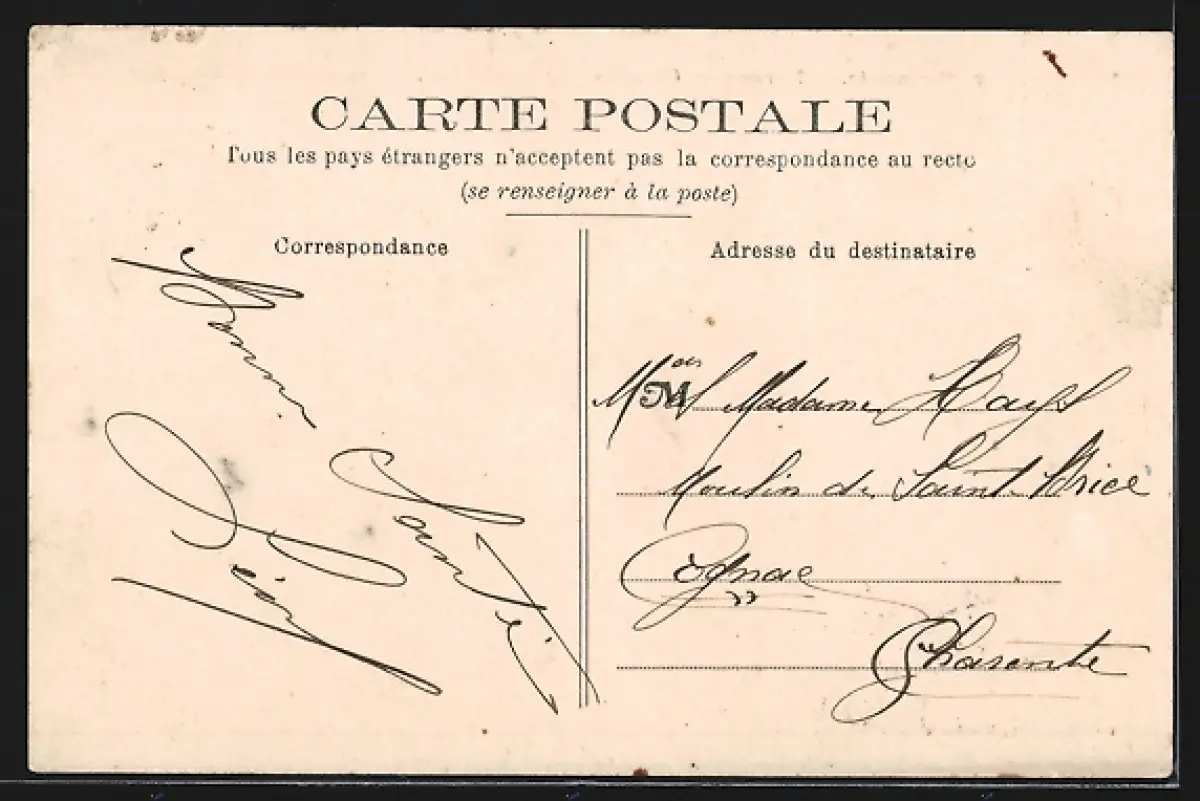 CARTE POSTALE
Tous les pays étrangers n'acceptent pas la correspondance au recto
(se renseigner à la poste)
Correspondance
Adresse du destinataire
Bonne
Santé
M
Madame Hays
Moulin de Saint-Brice
Cognac
Charente